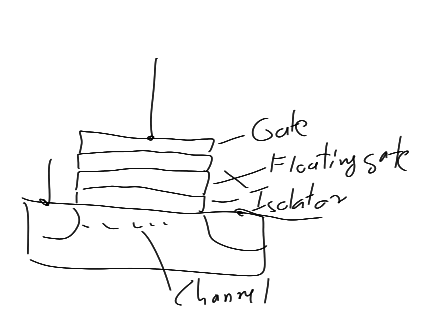 Gate
Floating gate
Isolator
Channel